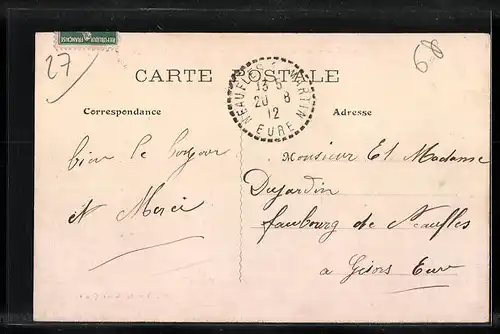 REPUBLIQUE FRANÇAISE
27
68
CARTE POSTALE
NEAUFLES ST MARTIN
13 5
20 8
12
EURE
Correspondance
Adresse
bien le bonjour
et Merci
Monsieur Et Madame
Dujardin
faubourg de Neaufles
a Gisors Eure